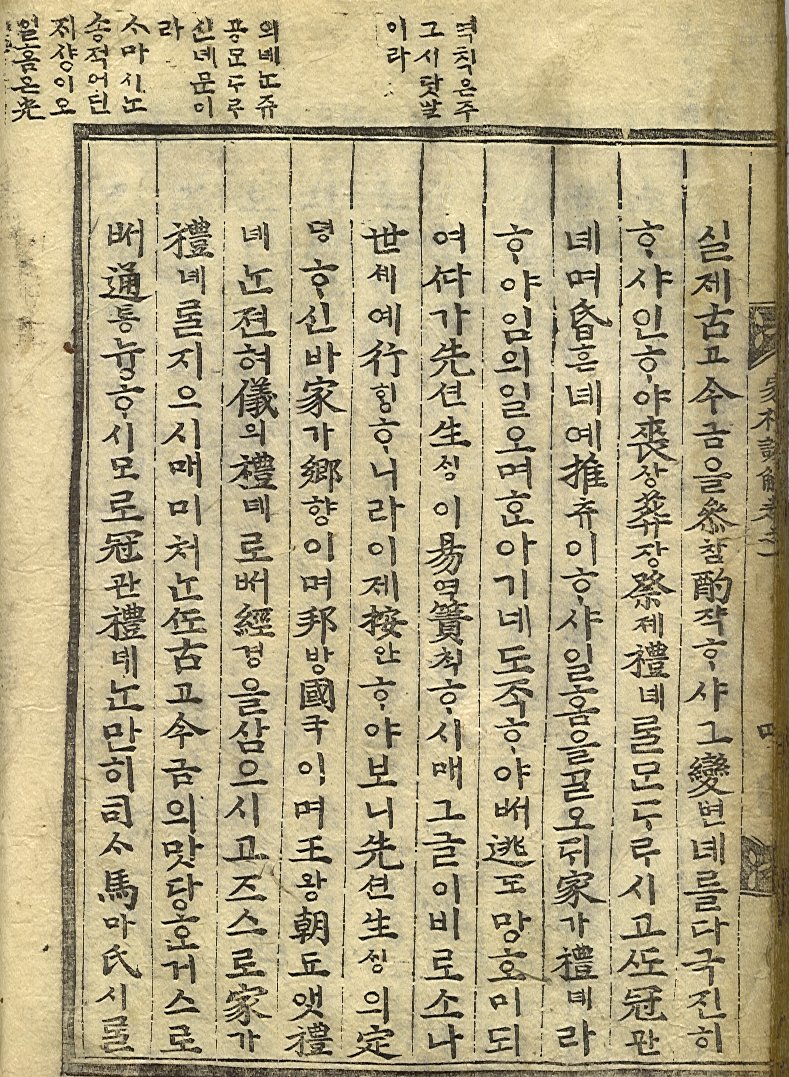 역ᄎᆡᆨ은주
그시닷말
이라
의녜ᄂᆞᆫ쥬
공모ᄃᆞ루
신녜문이
라
ᄉᆞ마시ᄂᆞᆫ
송적어딘
ᄌᆡ샹이오
일홈은光
家礼諺解卷之一
四
실제古고今금을叅참酌쟉ᄒᆞ샤그變변녜를다극진히
ᄒᆞ샤인ᄒᆞ야喪상葬장祭제禮녜ᄅᆞᆯ모ᄃᆞ루시고ᄯᅩ冠관
녜며昏혼녜예推츄이ᄒᆞ샤일홈을ᄀᆞᆯ오ᄃᆡ家가禮녜라
ᄒᆞ야임의일오며ᄒᆞᆫ아기녜도죡ᄒᆞ야ᄡᅥ逃도망호미되
여ᄯᅡ가先션生ᄉᆡᆼ이易역簀ᄎᆡᆨᄒᆞ시매그글이비로소나
世셰예行ᄒᆡᆼᄒᆞ니라이제按안ᄒᆞ야보니先션生ᄉᆡᆼ의定
뎡ᄒᆞ신바家가鄕향이며邦방國국이며王왕朝됴앳禮
녜ᄂᆞᆫ젼혀儀의禮녜로ᄡᅥ經경을삼으시고ᄌᆞ스로家가
禮녜ᄅᆞᆯ지으시매미처ᄂᆞᆫᄯᅩ古고今금의맛당호거스로
ᄡᅥ通통늉ᄒᆞ시모로冠관禮녜ᄂᆞᆫ만히司ᄉᆞ馬마氏시ᄅᆞᆯ